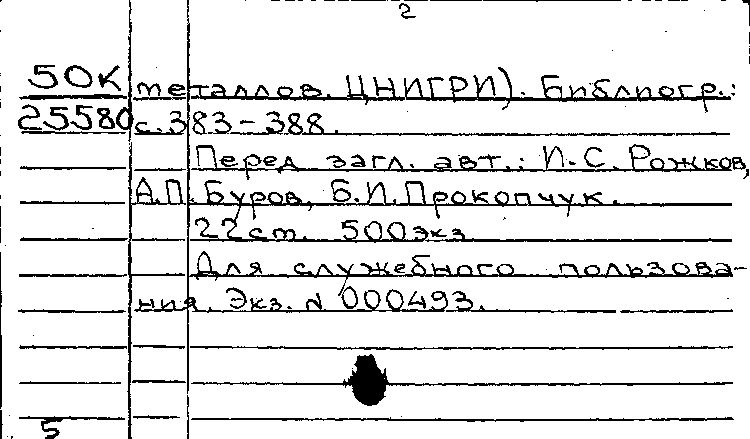 2
50К металлов. ЦНИГРИ). Библиогр.:
25580 с. 383-388.
Перед загл. авт.: И.С. Рожков,
А.П. Буров, Б.И. Прокопчук.
22см. 500экз
Для служебного пользова-
ния. Экз. N 000493.
5